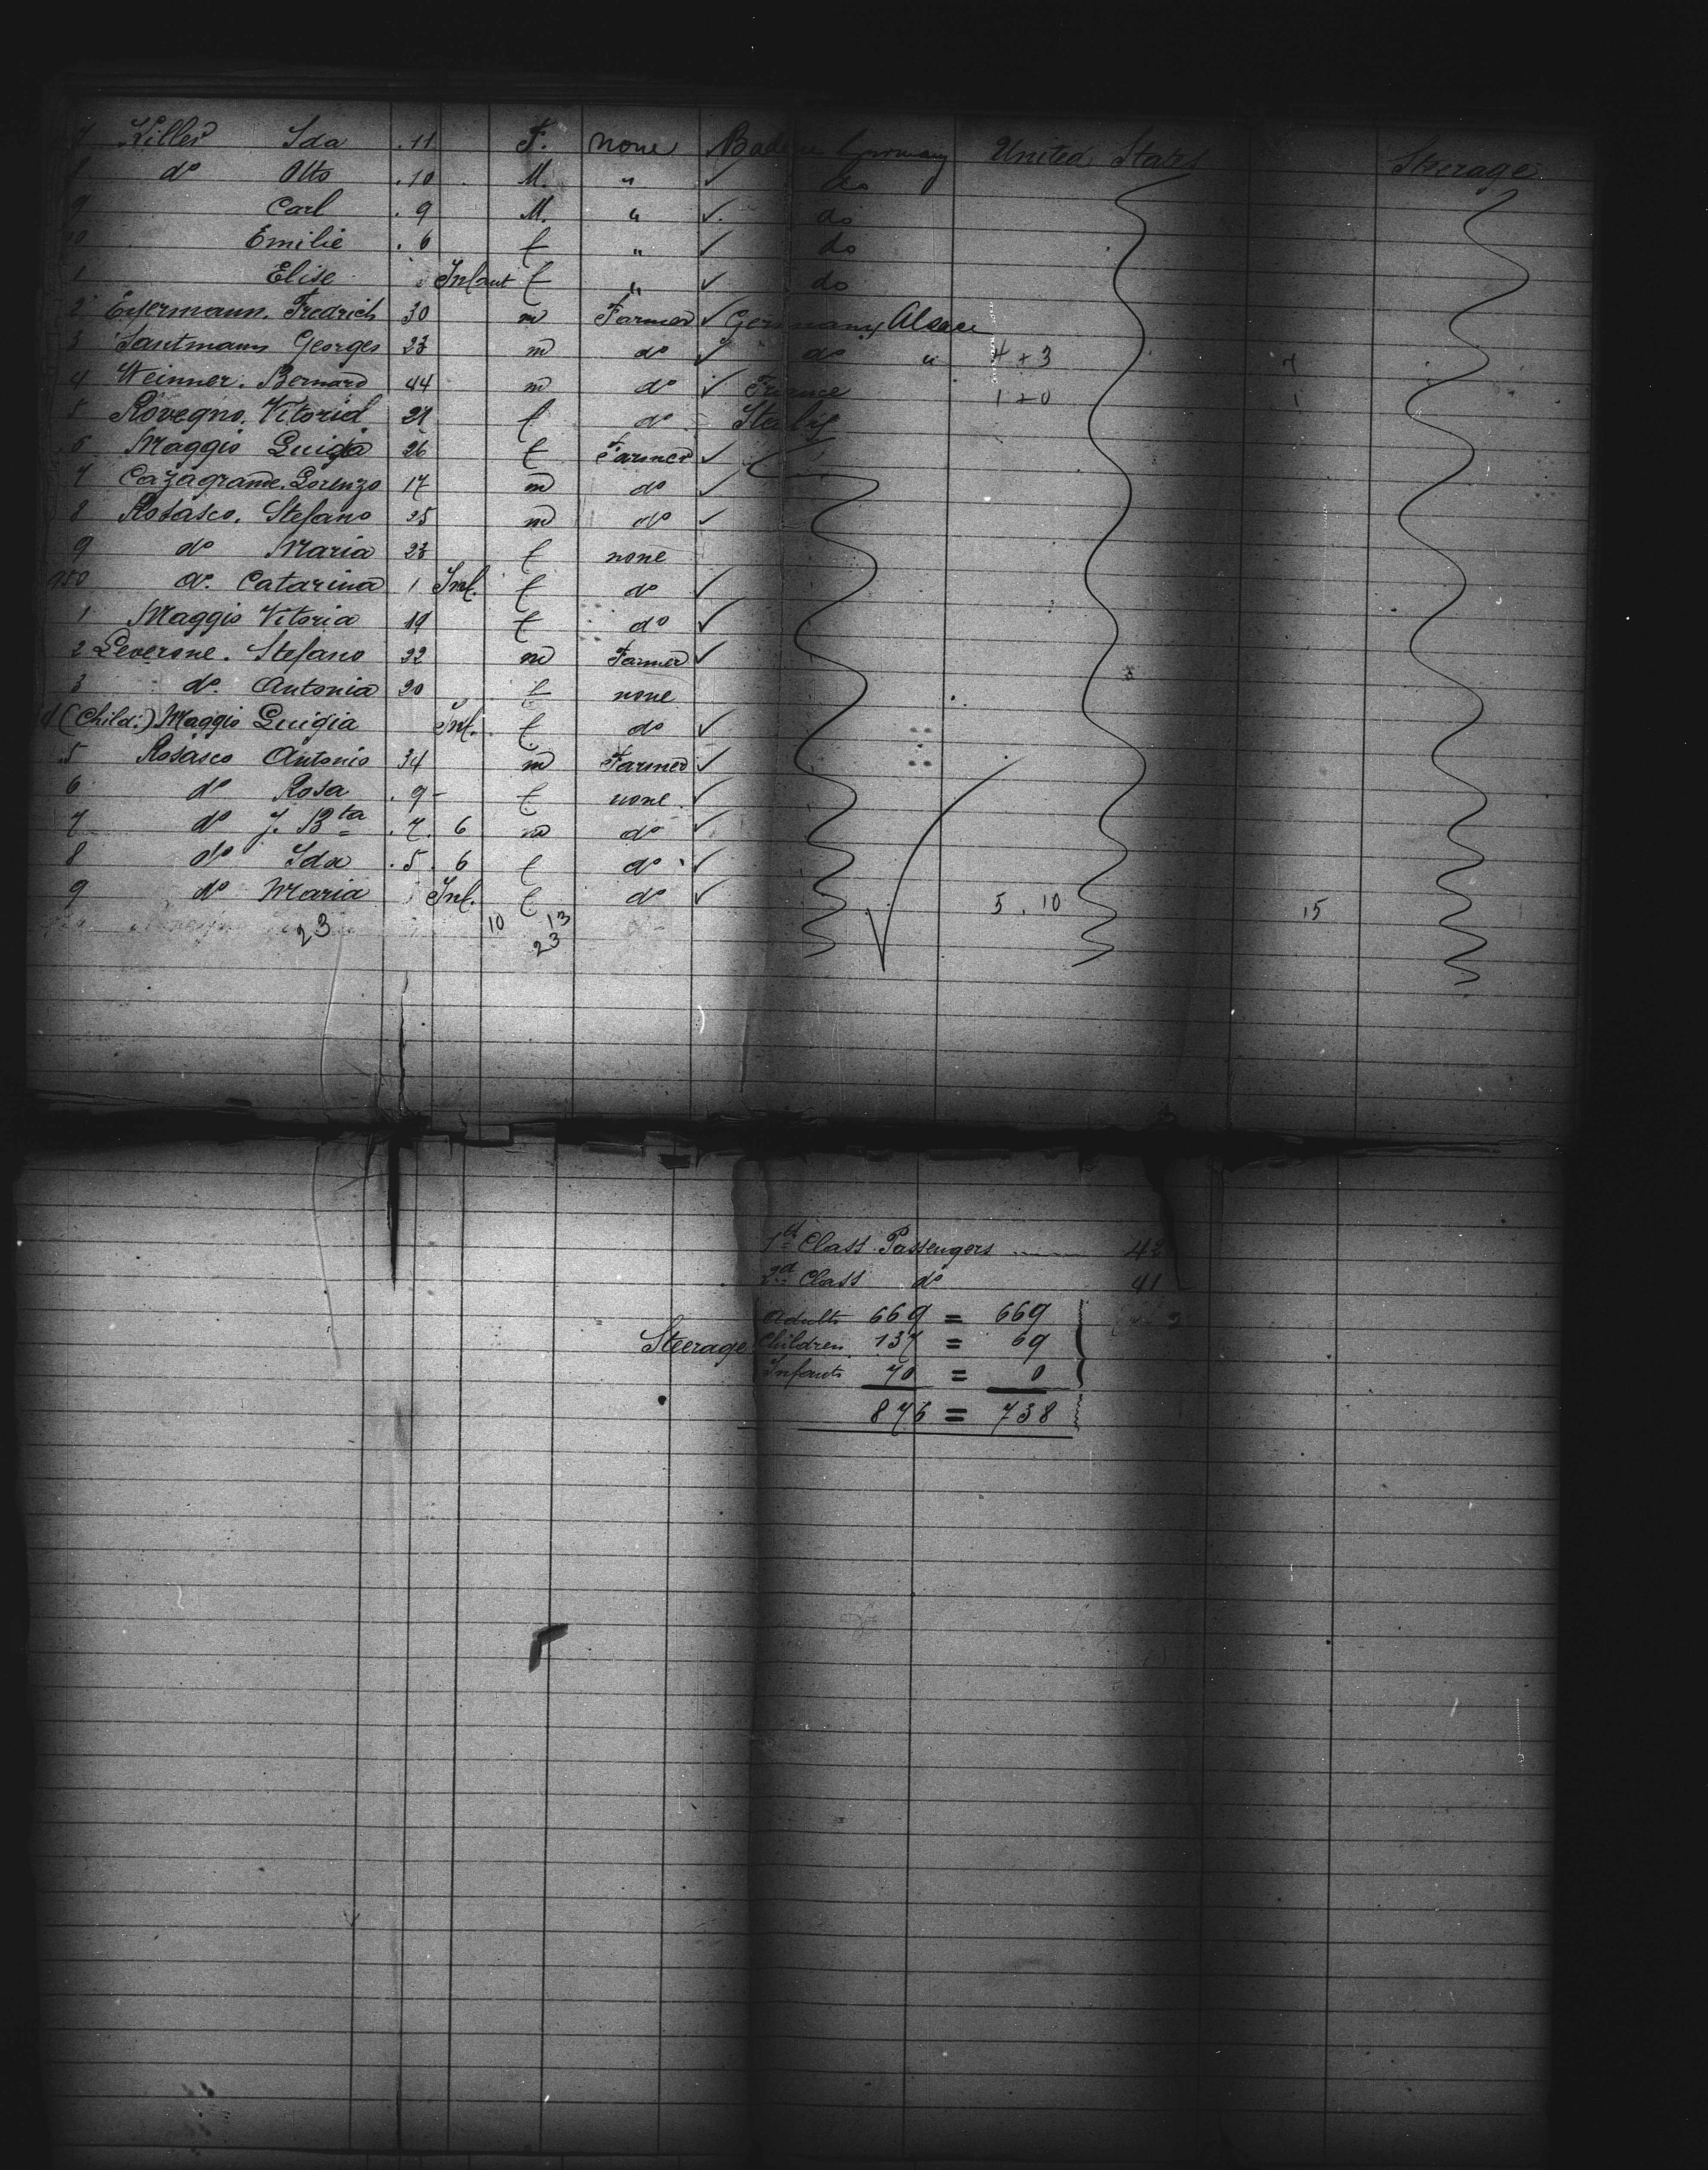 7 Killer Ida 11 F. none Baden Germany United States Steerage
8 do Otto 10 M. " ✓ do
9 Carl 9 M. " ✓ do
Emilie 6 f " ✓ do
1 Elise Infant f " ✓ do
2 Fredrich 30 m Farmer ✓ Germany Alsace
3 Georges 23 m do ✓ do " 4 + 3 7
4 Weinner. Bernard 44 m do ✓ France 1 + 0 1
5 Rovegno. Vitoria 21 f do Italy
6 Maggio Luigia 26 f Farmer ✓
7 Cazagrande. Lorenzo 17 m do ✓
8 Rosasco. Stefano 25 m do ✓
9 do Maria 23 f none
950 do. Catarina 1 Inf. f do ✓
1 Maggio Vitoria 19 f do ✓
2 Leverone. Stefano 22 m Farmer ✓
3 do. Antonia 20 f none
4 (Child:) Maggio Luigia Inf. f do ✓
5 Rosasco Antonio 34 m Farmer ✓
6 do Rosa 9 f none ✓
7 do J. Bta 7 6 m do ✓
8 do Ida 5 6 f do ✓
9 do Maria Inf. f do ✓ 5 . 10 15
23 10 13
23
1st Class Passengers 42
2nd Class do 41
Adults 669 = 669
Steerage Children 137 = 69
Infants 70 = 0
876 = 738